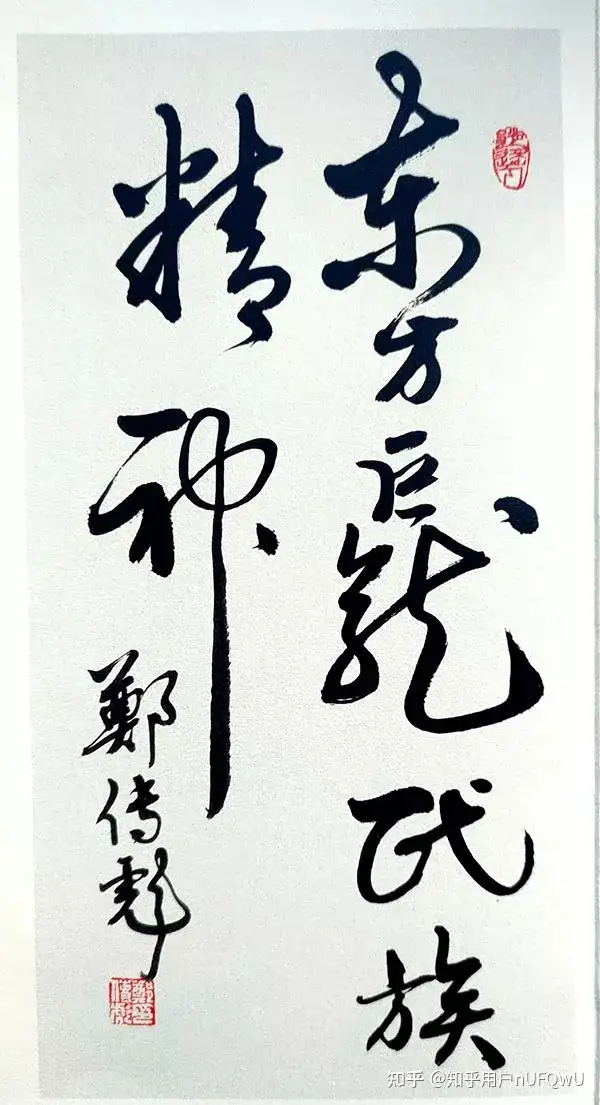 东方巨龍民族
精神
鄭传彪
知乎 @知乎用户nUFQwU